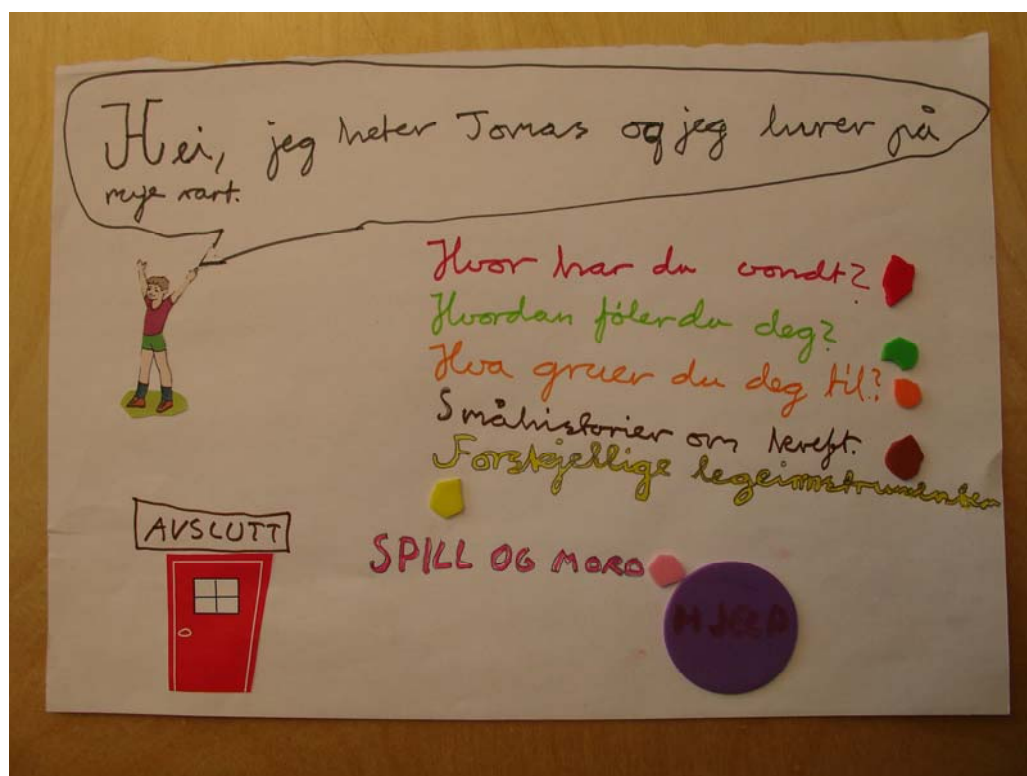 Hei, jeg heter Tomas og jeg lurer på
mye rart.
Hvor har du vondt?
Hvordan føler du deg?
Hva gruer du deg til?
Småhistorier om kreft.
Forskjellige legeinnstrumenter
AVSLUTT
SPILL OG MORO
HJELP